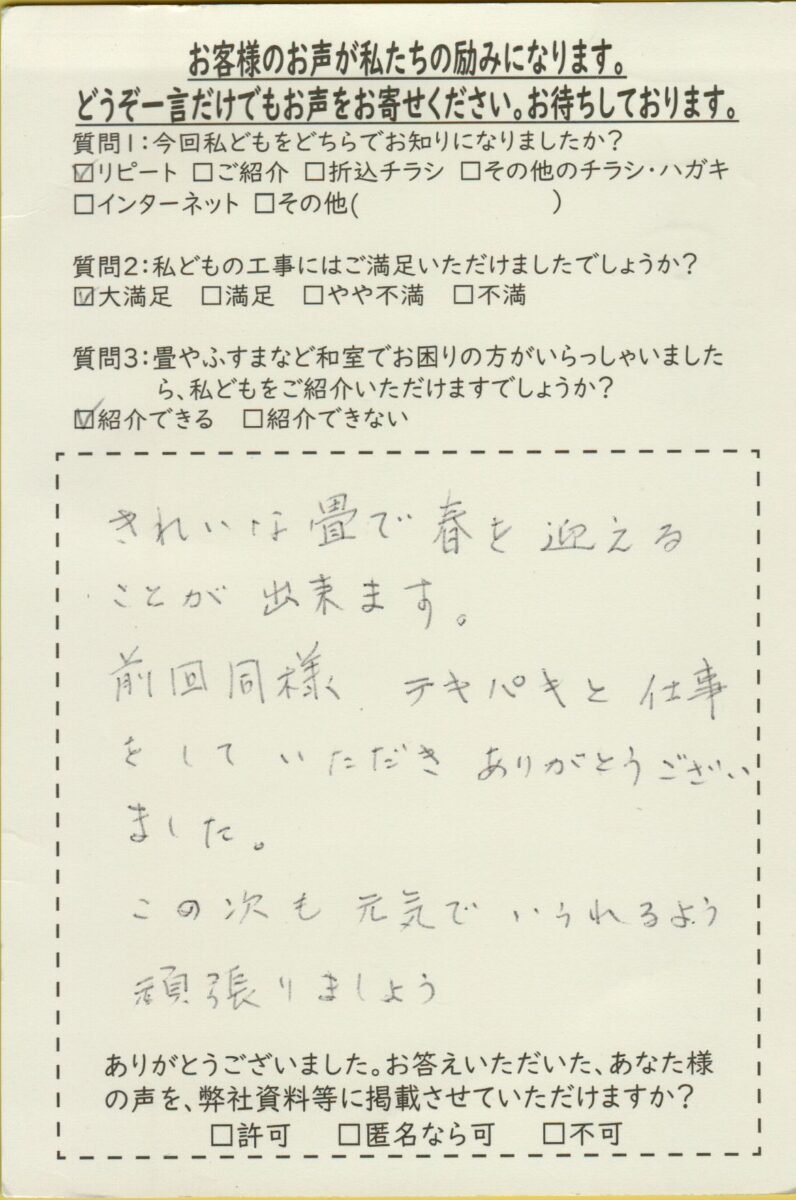 お客様のお声が私たちの励みになります。
どうぞ一言だけでもお声をお寄せください。お待ちしております。
質問1:今回私どもをどちらでお知りになりましたか?
☑リピート □ご紹介 □折込チラシ □その他のチラシ・ハガキ
□インターネット □その他(　　　　　　　　)
質問2:私どもの工事にはご満足いただけましたでしょうか?
☑大満足 □満足 □やや不満 □不満
質問3:畳やふすまなど和室でお困りの方がいらっしゃいました
ら、私どもをご紹介いただけますでしょうか?
☑紹介できる □紹介できない
きれいな畳で春を迎える
ことが出来ます。
前回同様く テキパキと仕事
をしていただき ありがとうござい
ました。
この次も元気でいられるよう
頑張りましょう
ありがとうございました。お答えいただいた、あなた様
の声を、弊社資料等に掲載させていただけますか?
□許可 □匿名なら可 □不可